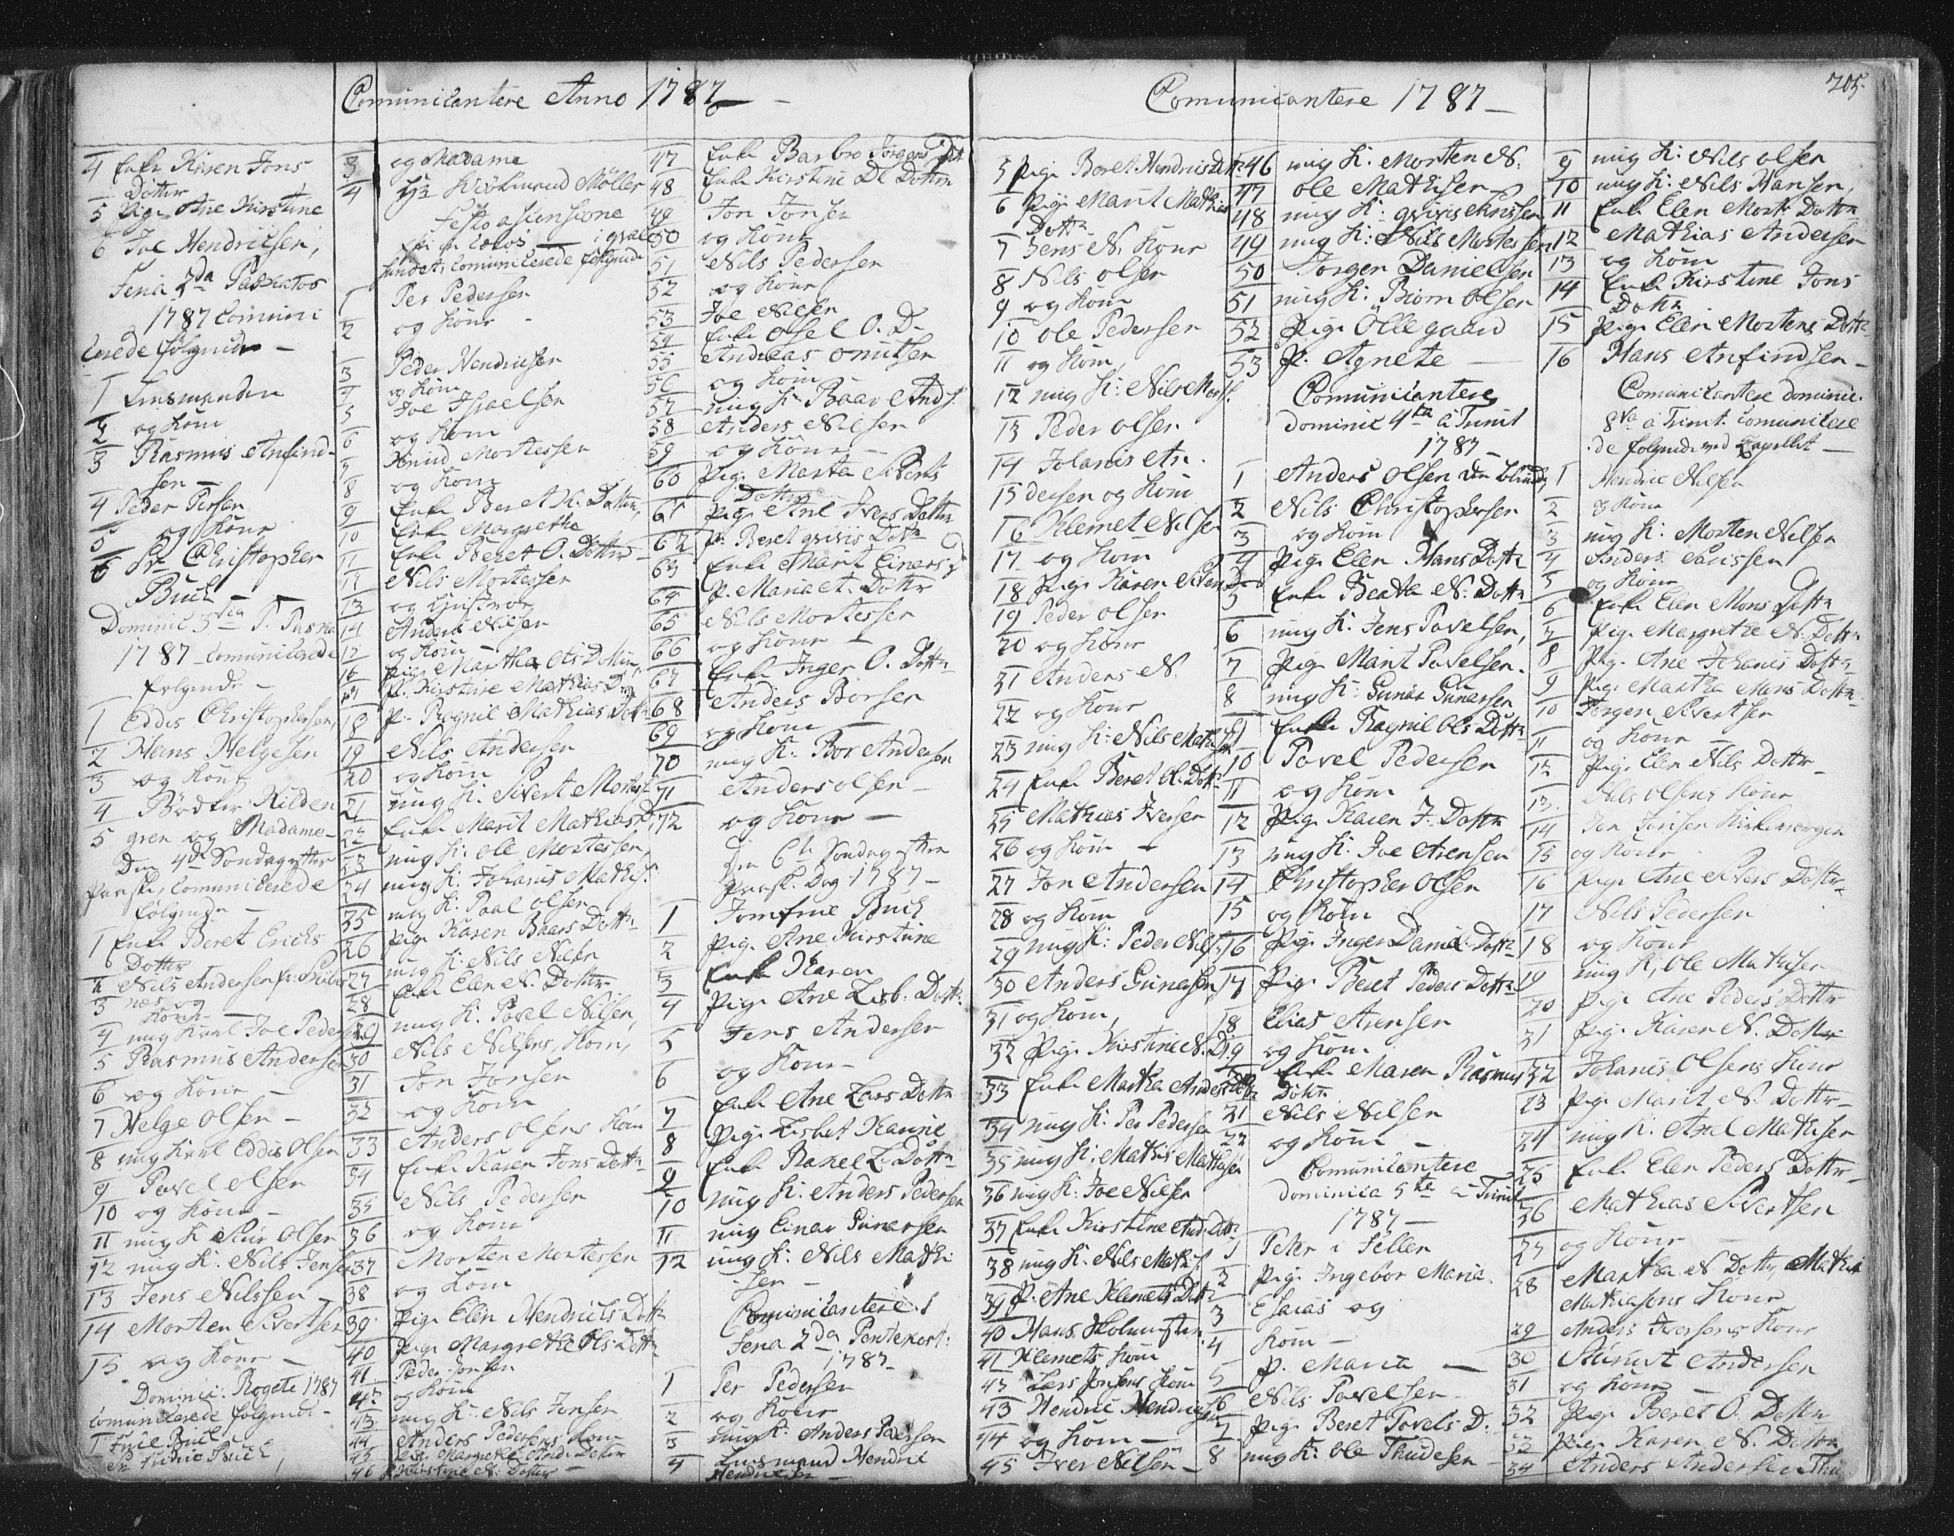 Comunicantere Anno 1787
4 Enke Karen Jons
Dotter
5 Pige Ane Kirstine
6 Joe Hendricsen,
Feria 2da Paschatos
1787 Comuni
cerede følgende
1 Lensmanden
2 og Kone
3 Rasmus Anfind-
sen
4 Peder Persen
5 og Kone
6 Sr Christopher
Buch
Dominic 3tia P. Pascha
1787 Comunicerede
følgende
1 Eddis Christophersen,
2 Hans Helgesen
3 og Kone
4 Bödker Kilden
5 gren og Madame
Den 4de Söndag efter
Paaske, Comunicerede
følgende
1 Enke Beret Erichs
Dotter
2 Nils Andersen
3 og
Kone
4 ung Karl Joe Peders
5 Rasmus Andersen
6 og Kone
7 Helge Olsen
8 ung Karl Eddis Olsen
9 Pavel Olsen
10 og Kone
11 ung K Siur Olsen
12 ung K. Nils Jensen
13 Jens Nilssen
14 Morten Sivertsen
15 og Kone
Dominic: Rogate 1787
Comunicerede følgende
1 Frue Buch
3 og Madame
4 Hr Kirkmand Möller
Festo ascensionis
Comunicerede følgende
1 Per Pedersen
2 og Kone
3 Peder Hendricsen
4 og Kone
5 Joe Israelsen
6 og Kone
7 Knud Mortessen
8 og Kone
9 Enke Beret H. Dotter,
10 Enke Margrethe
11 Enke Beret O. Dotter
12 Nils Mortessen
13 og Hustroe
14 Anders Nilsen
15 og Kone
16 Pige Martha Ols Dotter
17 P. Kirstine Mathias D.
18 P. Ragnil Mathias Dott
19 Nils Andersen
20 og Kone
21 ung K. Sivert Mortes
22 Enke Marit Mathias D
23 ung K: Ole Mortessen,
24 ung K: Johanes Mathis.
25 ung K: Paal Olsen
26 Pige Karen Baars Dottr
27 ung K: Nils Nilsen
28 Enke Elen N. Dottr
29 ung K. Pavel Nilsen,
30 Nils Nilsens Kone,
31 Jon Jonsen
32 og Kone
33 Anders Olsens Kone
34 Enke Karen Jons Dottr
35 Nils Pedersen
36 og Kone
37 Morten Mortessen
38 og Kone
39 Pige Elen Hendrichs Dott
40 Pige Margrethe Ols Dott
41 Peder Jonsen
42 og Kone
43 ung K. Nils Jensen
44 Anders Pedersens Kone
45 Pige Margrethe Anders Dotter
46 P. Kirstine N. Dotter
47 Enke Barbro Jörgens Dot
48 Enke Kirstine Dl Dottr
49 Jon Jonsen
50 og Kone
51 Nils Pedersen
52 og Kone
53 Joe Nilsen
54 Enke Osel O. D.
55 Andreas Knutsen
56 og Kone
57 ung K Baar Ands.
58 Anders Nilsen
59 og Kone
60 Pige Marta Siverts
Dotter
61 Pige Ane Ivers Dottr
62 P. Beret Dottr
63 Enke Marit Einers D
64 P. Maria A. Dottr
65 Nils Mortessen
66 og Kone
67 Enke Inger O. Dottr
68 Anders Borsen
69 og Kone
70 ung K. Bor Andersen
71 Anders Olsen
72 og Kone
Den 6te Söndag efter
Paaske Dag 1787
1 Jomfrue Buch
2 Pige Ane Kirstine
3 Enke Karen
4 Pige Ane Lisb. Dottr.
5 Jens Andersen
6 og Kone
7 Enke Ane Lars Dottr
8 Pige Lisbet Karine
9 Enke Rakel L Dottr
10 ung K: Anders Pedersen
11 ung Einar Gunarsen
12 ung K: Nils Mathi-
sen
Comunicantere
Feria 2da Pentekost:
1787
1 Per Pedersen
2 og Kone
3 ung K: Anders Pedersen
4 Lensmand Hendric
Hendricsen
Comunicantere 1787
205.
5 Pige Beret Hendrics Dottr
6 Pige Marit Mathias
Dottr
7 Jens N. Kone
8 Nils Olsen
9 og Kone
10 Ole Pedersen
11 og Kone
12 ung K: Nils Mortes.
13 Peder Olsen
14 Johanis An-
15 dersen og Kone
16 Klemet Nilsen
17 og Kone
18 Pige Karen
19 Peder Olsen
20 og Kone
21 Anders N.
22 og Kone
23 ung K: Nils Mathisen
24 Enke Beret Ol. Dottr
25 Mathias Iversen
26 og Kone
27 Jon Andersen
28 og Kone
29 ung K: Peder Nils.
30 Anders Gunersen
31 og Kone,
32 Pige Kirstine N. D.
33 Enke Martha Anders Dottr
34 ung K: Per Pedersen
35 ung K: Mathis Mathisen
36 ung K: Joe Nilsen
37 Enke Kirstine And: Dottr
38 ung K. Nils Mathis
39 P. Ane Klemets Dottr
40 Hans Skolmester
41 Klemets Kone
42 Lars Jonsens Kone
43 Hendric Hendricsen
44 og Kone
45 Iver Nilsen
46 ung K: Morten N.
47 Ole Mathisen
48 ung K:
49 ung K: Nils Mortessen
50 Jörgen Danielsen
51 ung K: Biörn Olsen
52 Pige Ollegaard
53 P. Agnete
Comunicantere
Dominic 4ta à Trinit
1787
1 Anders Olsen den blinde,
2 Nils Christophersen
3 og Kone
4 Pige Elen Hans Dottr
5 Enke Beata N. Dottr
6 ung K. Jens Pavelsen,
7 Pige Marit Pavelsen.
8 ung K: Gunar Gunarsen
9 Enke Ragnil Ols Dottr
10 Pavel Pedersen
11 og Kone
12 Pige Karen J. Dottr
13 ung K. Joe Arensen
14 Christopher Olsen
15 og Kone
16 Pige Inger Daniel: Dottr
17 Pige Beret Peders Dottr
18 Elias Arensen
19 og Kone
20 Enke Maren Rasmus
Dottr
21 Nils Nilsen
22 og Kone
Comunicantere
Dominica 5te à Trinit
1787
1 Peter i Fellen
2 Pige Ingebor Maria.
3 Esaias og
4 Kone
5 P. Maria
6 Nils Pavelsen
7 Pige Beret Pavels D.
8 ung K: Ole Thudesen
9 ung K: Nils Olsen
10 ung K: Nils Hansen,
11 Enke Elen Mort. Dottr
12 Mathias Andersen
13 og Kone
14 Enke Kirstine Jons
Dottr
15 Pige Elen Mortens Dottr
16 Hans Anfindsen
Comunicantere Dominic.
8va à Trinit. Comunicere-
de følgende ved Capellet
1 Hendric Nilsen
2 og Kone
3 ung K: Morten Nilsen
4 Anders Larissen
5 og Kone
6 Enke Elen Mons Dottr
7 Pige Margrethe N. Dottr
8 Pig. Ane Johanis Dottr
9 Pige Martha Mons Dottr
10 Jörgen Sivertsen
11 og Kone
12 Pige Elen Nils Dottr
13 Nils Olsens Kone
14 Jon Jonsen Kirkeværger
15 og Kone
16 Pige Ane Dottr
17 Nils Pedersen
18 og Kone
19 ung K, Ole Mathisen
20 Pige Ane Peders Dottr
21 Pige Karen N. Dottr
22 Johanis Olsens Kone
23 Pige Marit N. Dottr
24 ung K. Axel Mathisen
25 Enke Elen Peders Dottr
26 Mathias Sivertsen
27 og Kone
28 Martha N Dottr, Mathis
Mathiasons Kone
29 Anders Iversens Kone
30 Siurt Andersen
31 og Kone
32 Pige Beret O. Dottr
33 Pige Karen N. Dottr
34 Anders Andersen